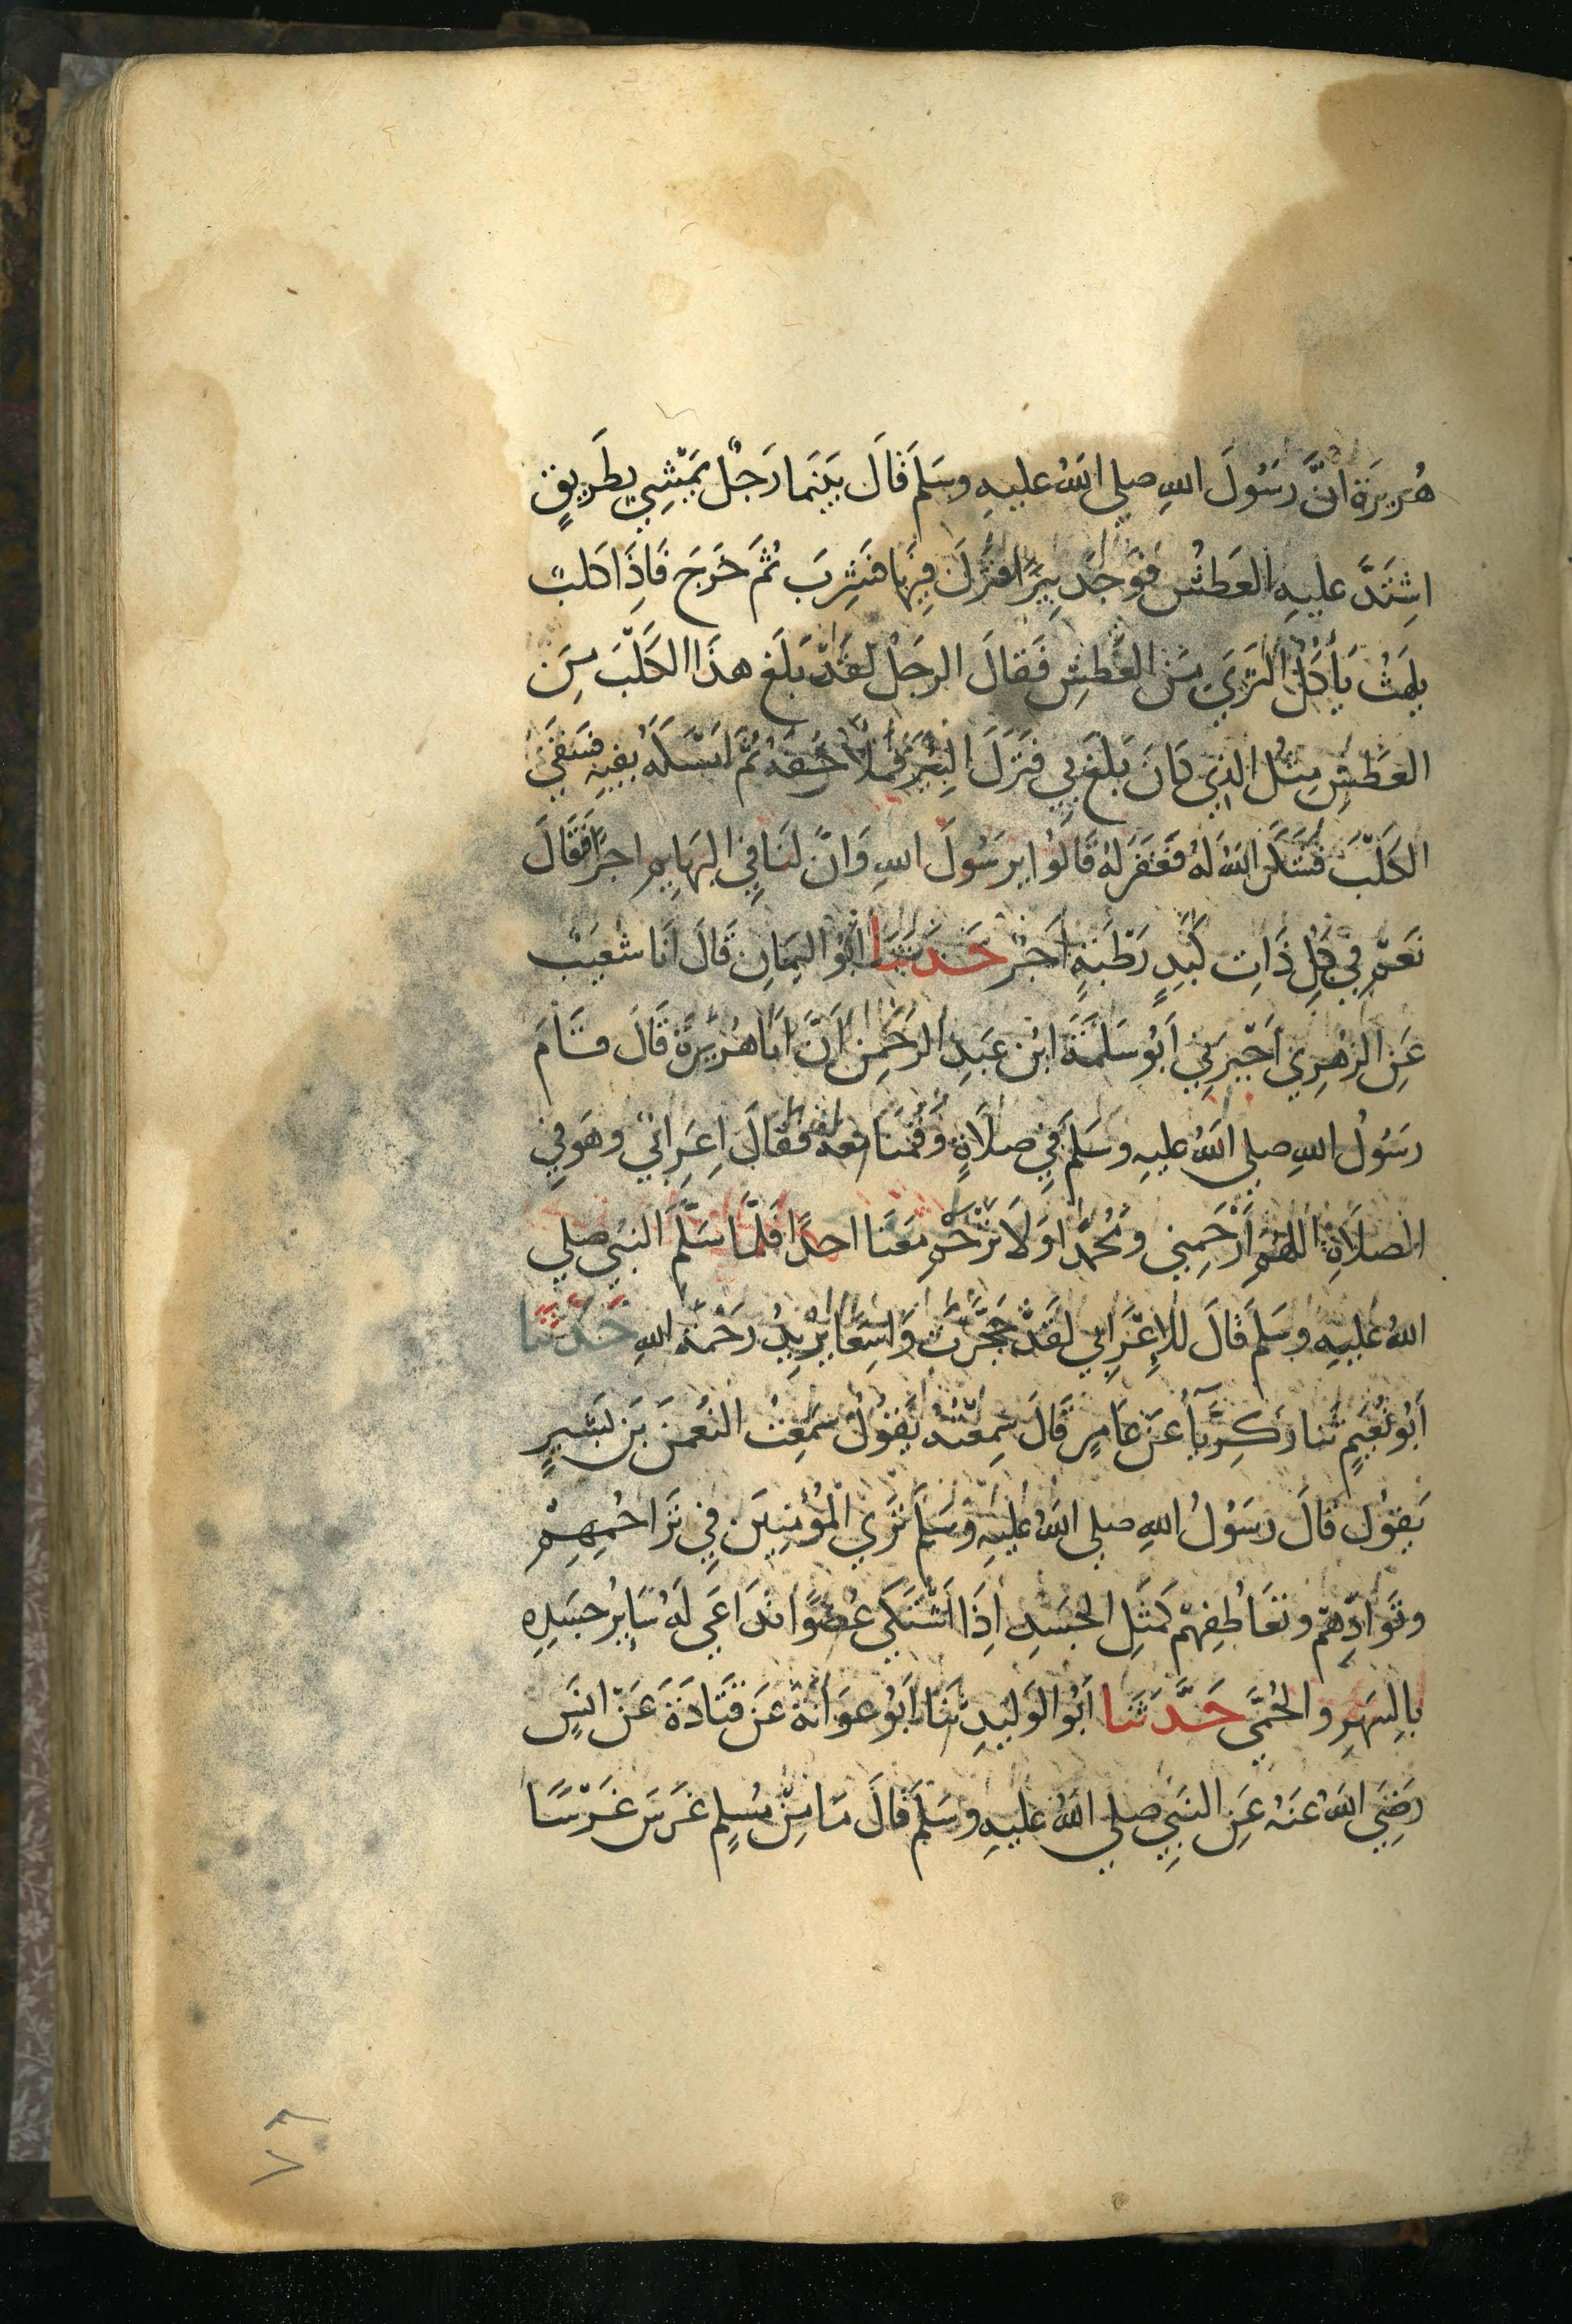 هُرَيرَةَ انَّ رَسُولَ اللهِ صلي اللهُ عليهِ وسَلمَ قَالَ بَينَمَا رَجُلٌ يَمْشِي بِطَرِيقٍ
اشِتَدَّ عليهِ العَطَشُ فوَجَدَ بِيرًا فنَزَلَ فِيهَا فشِربَ ثُمَ خَرجَ فَاِذَا كَلبٌ
يلهَثُ يَأكُلُ الثرَي مِنَ العَطَشِ فَقالَ الرجُلُ لقَدْ بَلَغ هذَا الكَلْبَ مِنَ
العَطَشِ مِثلُ الذِي كَانَ بَلَغ بِي فَنَزَلَ البِئْرَ فمَلأَ خُفهُ ثُمَّ امسَكَهُ بفِيهِ فسَقَي
الكَلْبَ فشَكَرَ اللهُ لهُ فغَفَرَ لهُ قَالُوا يرَسُولَ اللهِ وَانَّ لنَا فِي البهَايِمِ اجرًا فَقَالَ
نَعَمْ فِي كُلِ ذَاتِ كَبَدٍ رَطْبَةٍ اَجرٌ حَدَثنَا ابُو اليمَانِ قَالَ انَا شعَيبٌ
عَنِ الزهرِي اَخْبَرنِي اَبُو سَلَمَةَ ابْن عَبدِ الرحَمنِ اَنَّ ابَا هُرَيرَةَ قَالَ قَامَ
رَسُولُ اللهِ صلي اللهُ عليهِ وسَلمَ فِي صلاَةٍ وَقُمنَا معَهُ فقَالَ اِعرَابيٌ وهَو فِي
الصلاَةِ اللهُمَ ارْحَمنِي ومُحَمدًا وَلاَ تَرْحَمْ معَنَا احدًا فَلمَّا سَلَّمَ النبيُ صلي
اللهُ عليهِ وسَلمَ قَالَ للاِعْرَابِي لقَدْ حَجَّرْتَ وَاسِعًا يُرِيدُ رَحْمَة اللهِ حَدَّثنَا
اَبُو نُعَيمٍ ثَنا زكَرِيَّآء عنْ عَامِرٍ قَالَ سَمِعْتُهُ يَقُولُ سَمعْتُ النعْمنَ بَن بَشيرٍ
يَقوُلُ قَالَ رَسُولُ اللهِ صلي اللهُ عليهِ وسَلمَ تَرَي الْمُؤمِنِيَن فِي تَرَاحُمِهِمْ
وتَوَادِّهِمْ وتعَاطُفِهمْ كمَثَلِ الجسَدِ اِذَا اَشْتَكَي عُضوًا تدَاعَي لَهُ سَايِرُ جسَدِهِ
بالِسَهَرِ والحُمَّي حَدَّثَنَا اَبُو الوَليدِ ثَنَا اَبُو عوَانَةَ عَن قَتَادَةَ عَنْ انَسٍ
رَضِيَ اللهُ عَنهُ عَنِ النبَيِ صلي اللهُ عليهِ وسَلمَ قَالَ مَا مِنْ مسُلمٍ غرَسَ غَرْسًا